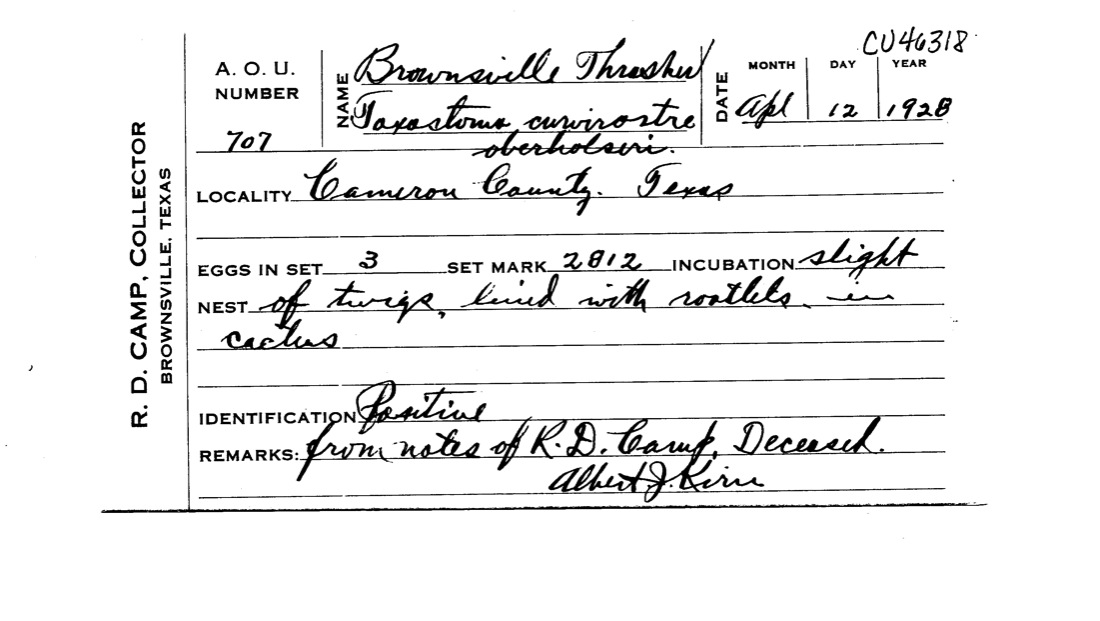 CU46318
R. D. CAMP, COLLECTOR
BROWNSVILLE, TEXAS
A. O. U.
NUMBER
707
NAME Brownsville Thrasher
Toxostoma curvirostre
oberholseri.
DATE
MONTH DAY YEAR
Apl 12 1928
LOCALITY Cameron County. Texas
EGGS IN SET 3 SET MARK 2812 INCUBATION slight
NEST of twigs, lined with rootlets. in
cactus
IDENTIFICATION Positive
REMARKS: from notes of R. D. Camp, Deceased.
Albert J. Kirn